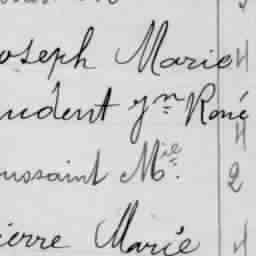 oseph Marie 4
udent Jn René 4
oussaint Mie. 2
ierre Marie 4